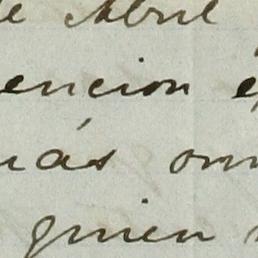 de Abril
encion
más
quien